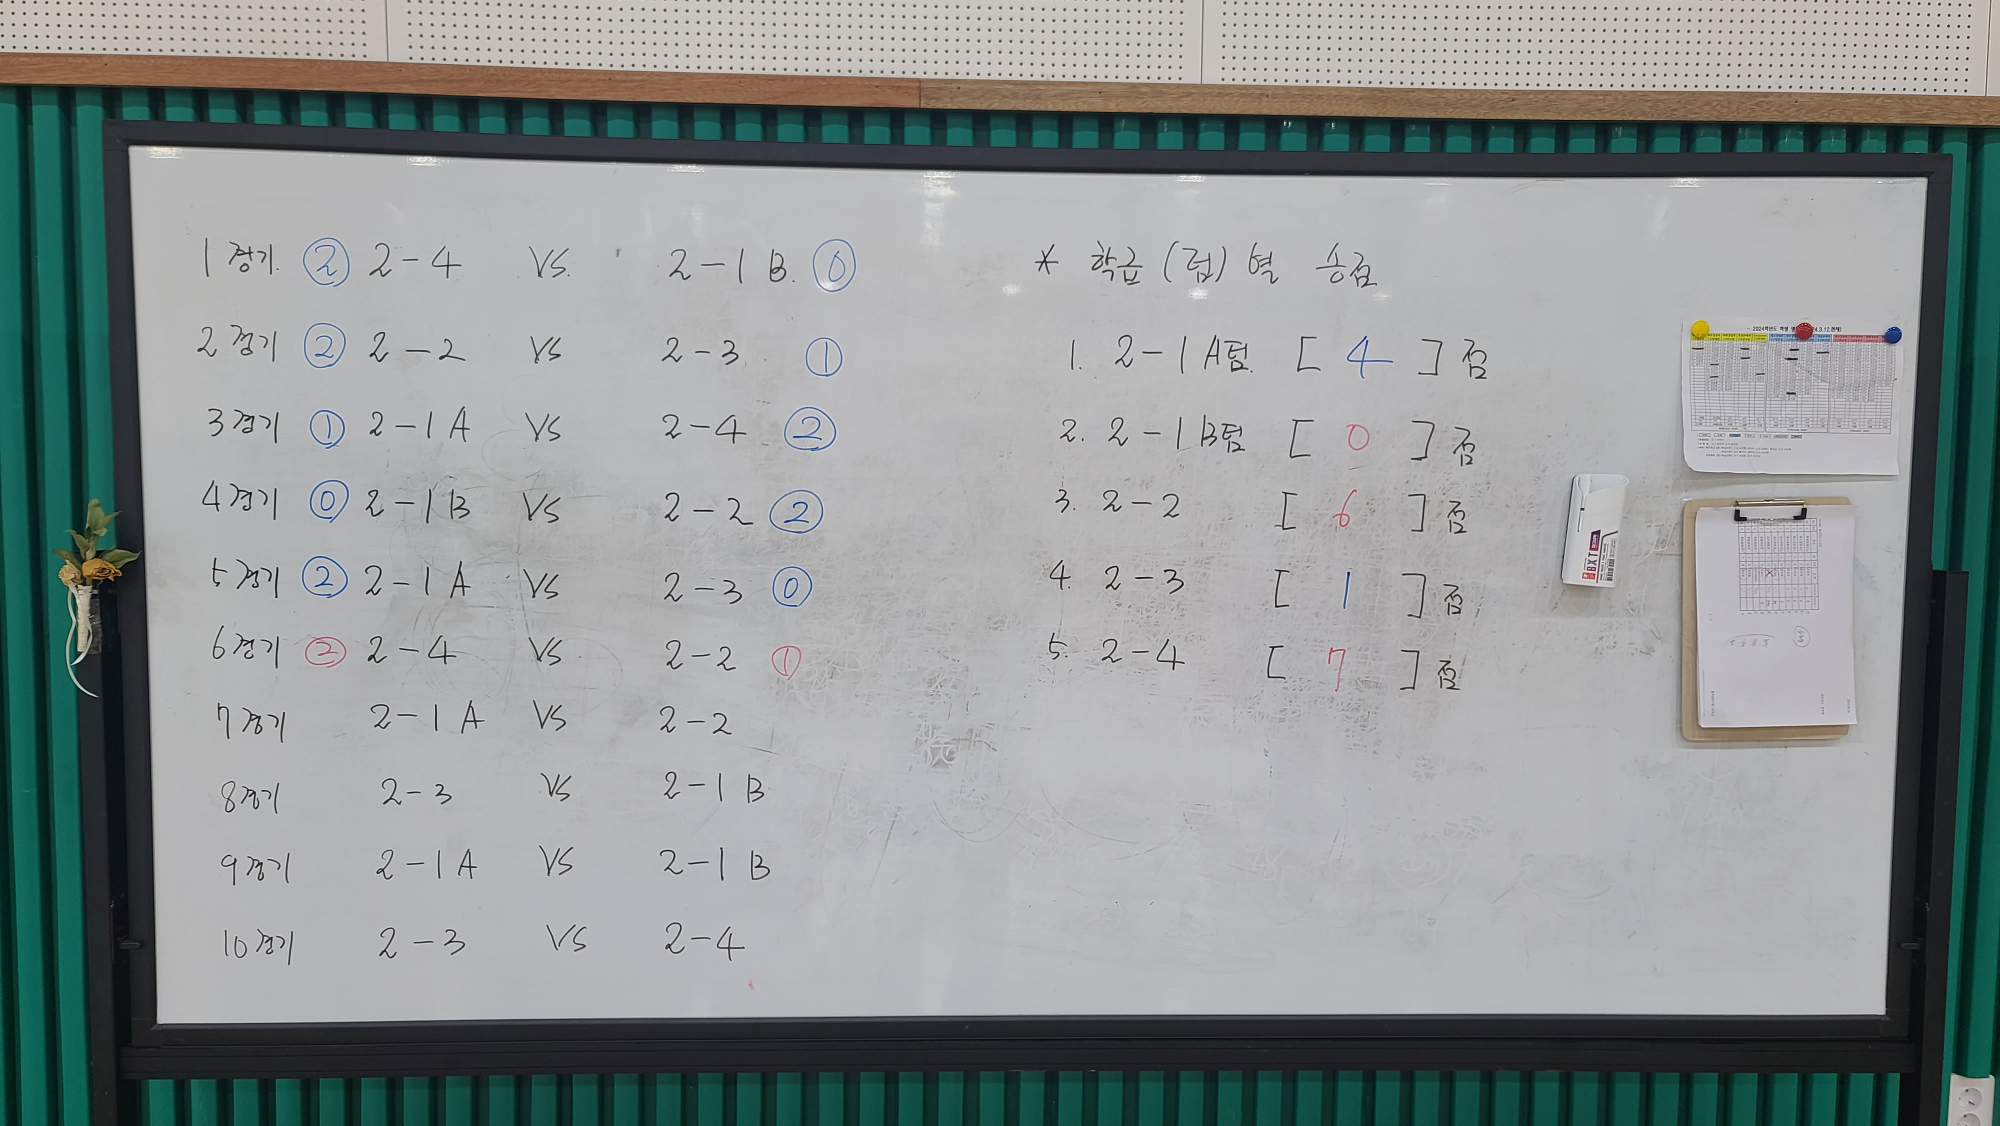 1 경기. ② 2-4 VS. 2-1 B. ⓪
2 경기 ② 2-2 VS 2-3. ①
3 경기 ① 2-1 A VS 2-4 ②
4 경기 ⓪ 2-1 B VS 2-2 ②
5 경기 ② 2-1 A VS 2-3 ⓪
6 경기 ② 2-4 VS 2-2 ①
7 경기 2-1 A VS 2-2
8 경기 2-3 VS 2-1 B
9 경기 2-1 A VS 2-1 B
10 경기 2-3 VS 2-4
* 학급(팀)별 승점
1. 2-1 A팀. [ 4 ] 점
2. 2-1 B팀 [ 0 ] 점
3. 2-2 [ 6 ] 점
4. 2-3 [ 1 ] 점
5. 2-4 [ 7 ] 점
BXT